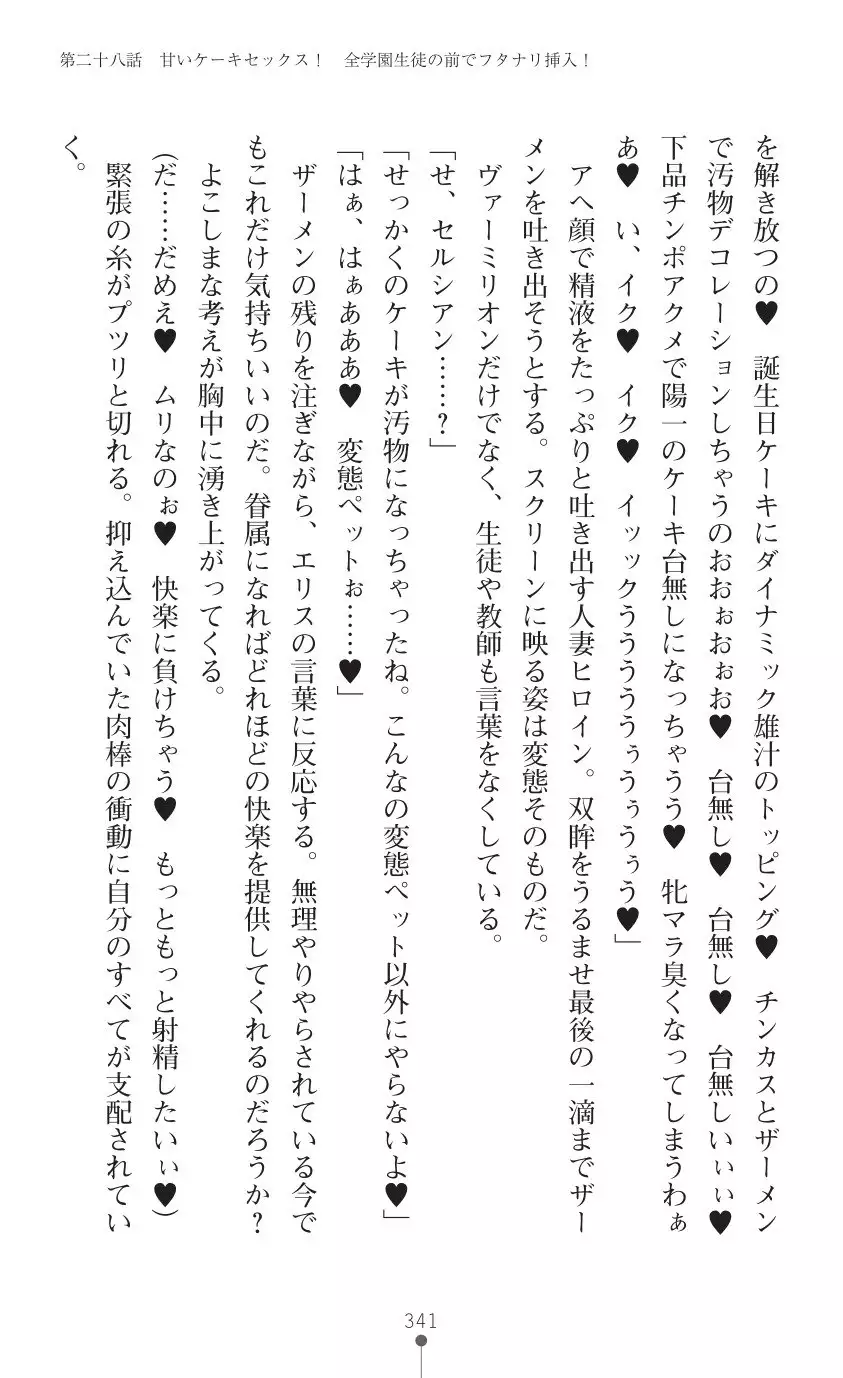 第二十八話　甘いケーキセックス！　全学園生徒の前でフタナリ挿入！
を解き放つの♥　誕生日ケーキにダイナミック雄汁のトッピング♥　チンカスとザーメン
で汚物デコレーションしちゃうのおおぉおぉお♥　台無し♥　台無し♥　台無しいぃぃ♥
下品チンポアクメで陽一のケーキ台無しになっちゃうう♥　牝マラ臭くなってしまうわぁ
あ♥　い、イク♥　イク♥　イックうううううぅうぅうぅう♥」
　アヘ顔で精液をたっぷりと吐き出す人妻ヒロイン。双眸をうるませ最後の一滴までザー
メンを吐き出そうとする。スクリーンに映る姿は変態そのものだ。
　ヴァーミリオンだけでなく、生徒や教師も言葉をなくしている。
「せ、セルシアン……？」
「せっかくのケーキが汚物になっちゃったね。こんなの変態ペット以外にやらないよ♥」
「はぁ、はぁあああ♥　変態ペットぉ……♥」
　ザーメンの残りを注ぎながら、エリスの言葉に反応する。無理やりやらされている今で
もこれだけ気持ちいいのだ。眷属になればどれほどの快楽を提供してくれるのだろうか？
　よこしまな考えが胸中に湧き上がってくる。
（だ……だめえ♥　ムリなのぉ♥　快楽に負けちゃう♥　もっともっと射精したいぃ♥）
　緊張の糸がプツリと切れる。抑え込んでいた肉棒の衝動に自分のすべてが支配されてい
く。
341